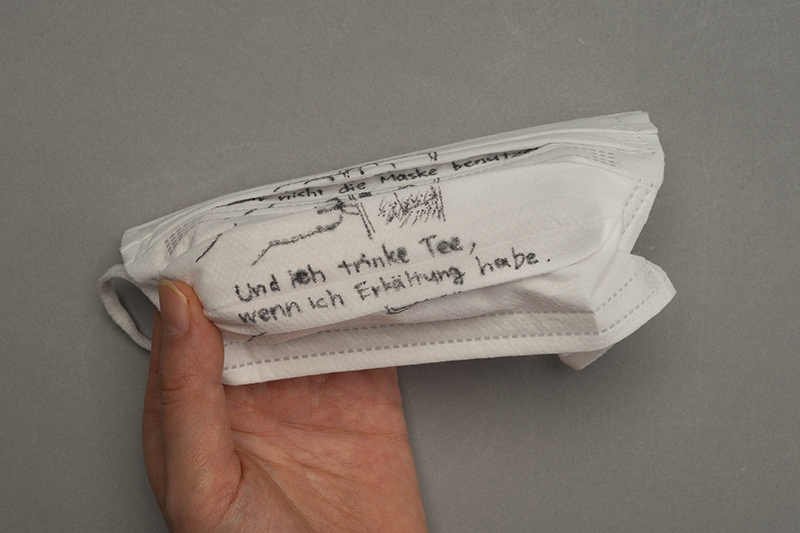 nicht die Maske benutze
Und ich trinke Tee,
wenn ich Erkältung habe.